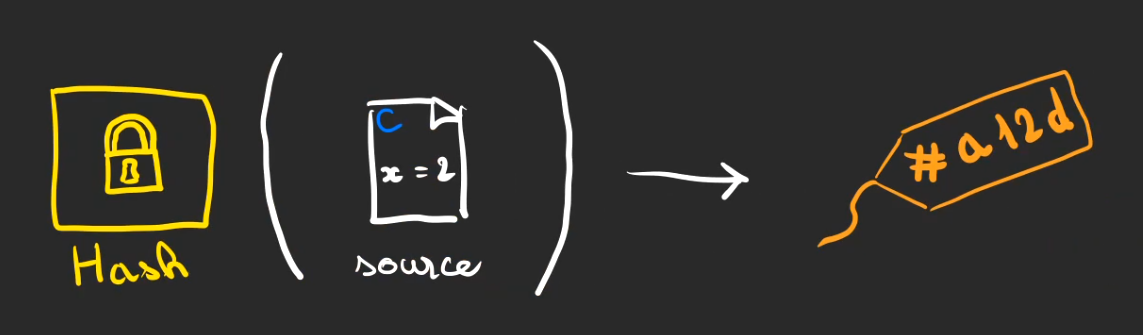 Hash
(
C
x = 2
source
)
#a12d